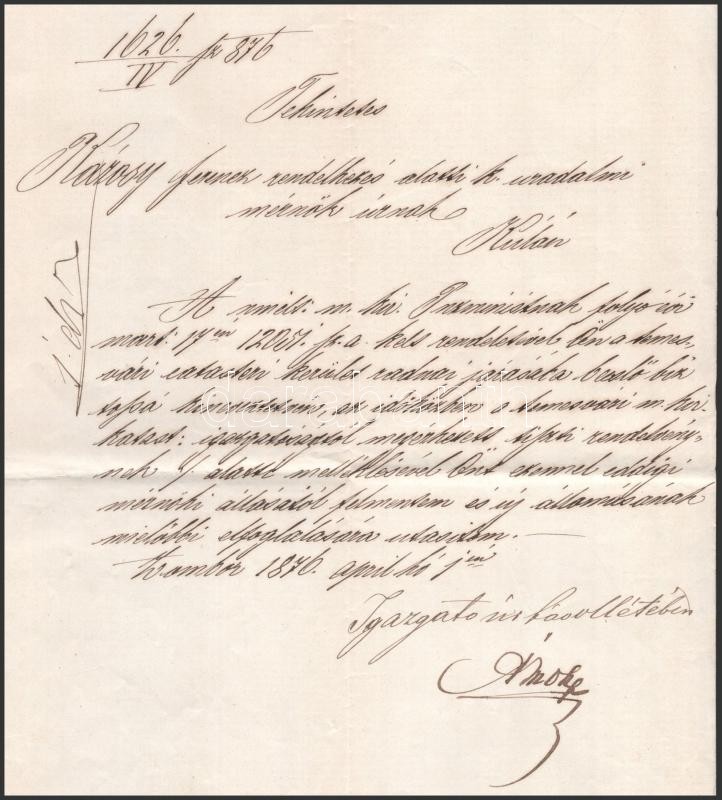 1626.
IV sz 876
Tekintetes
Rázosy Ferencz rendelkezés alatti k. uradalmi
mérnök úrnak
Kúlán
1. drb
A nmélt. m. kir. folyó évi
mart. 17én 12057. sz. a. kelt rendeletével Ön a temes-
vári cataster kerület radnai járásába becslő biz
tossá az időközben a temesvári m. kir.
katast: igazgatóságtól megérkezett tiszti rendelvény-
nek ./. alatti mellékletével Önt ezennel eddigi
mérnöki állásától felmentem és új állomásának
mielőbbi elfoglalására utasítom. —
Zombor 1876. april hó 1én
Igazgató úr távollétében